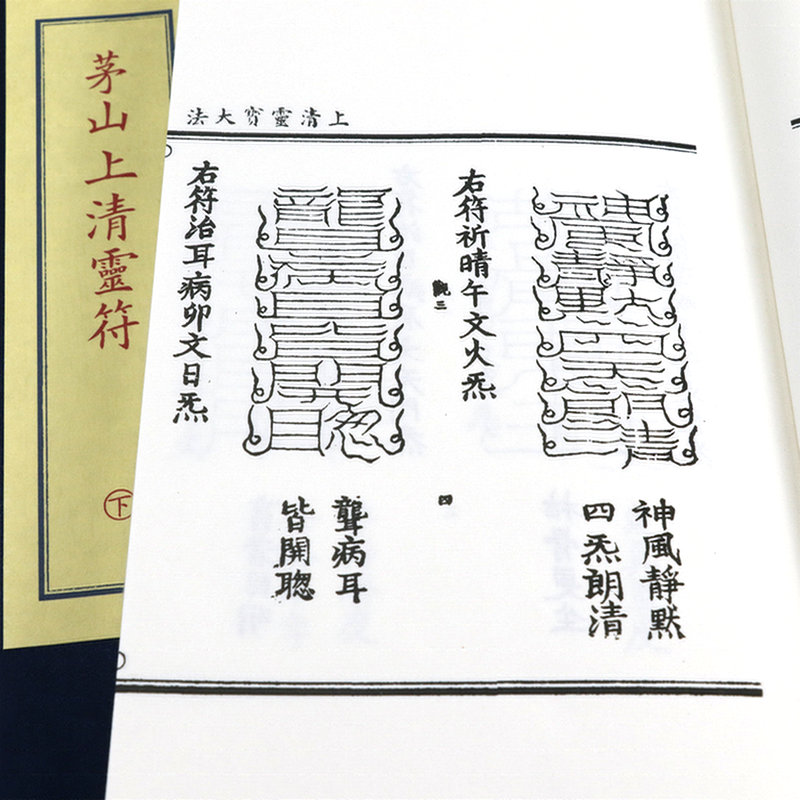 茅山上清靈符
下
上清靈寳大法
神風靜默
四炁朗清
右符祈晴午文火炁
觀三
四
聾病耳
皆開聦
右符治耳病卯文日炁